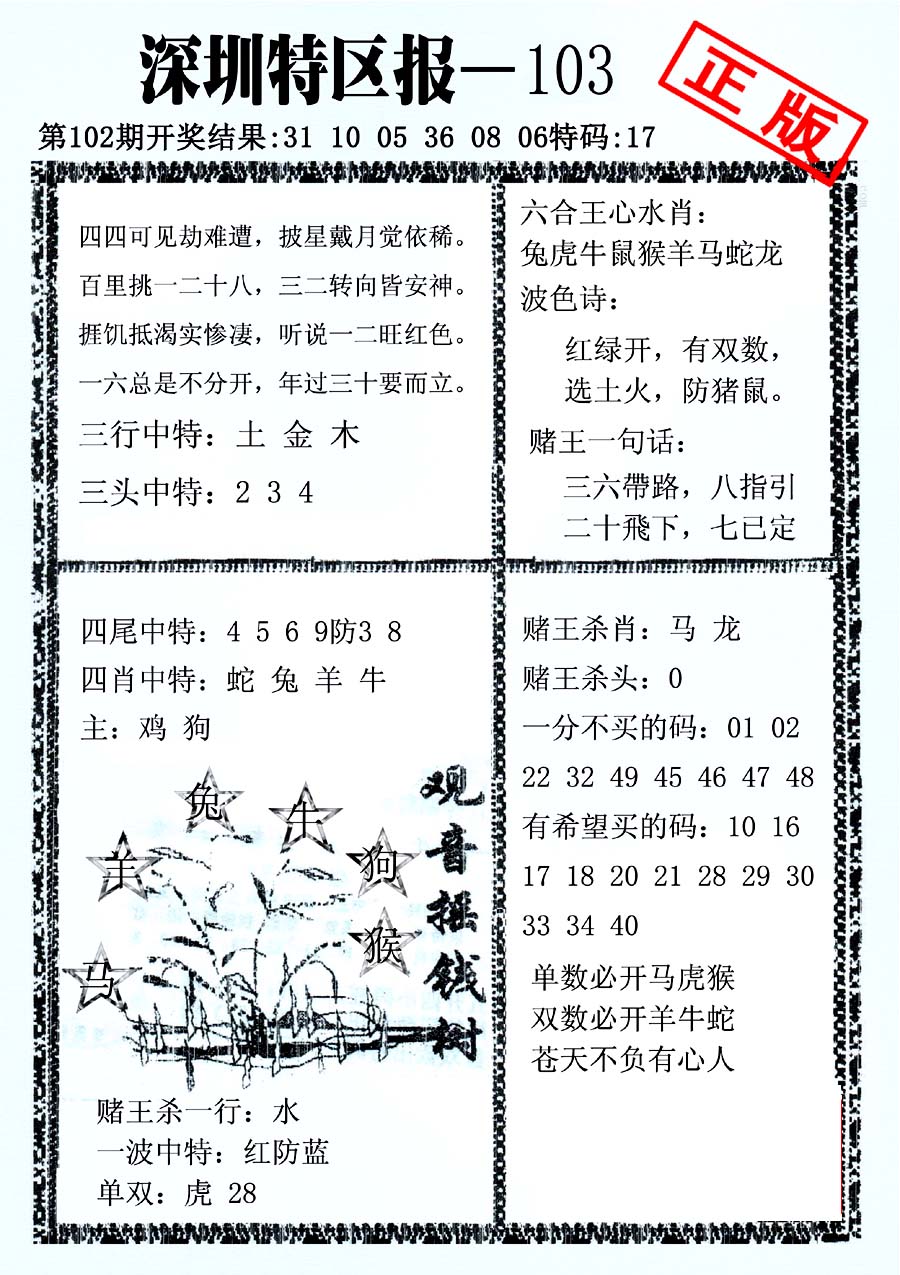 深圳特区报—103
正版
第102期开奖结果:31 10 05 36 08 06特码:17
四四可见劫难遭，披星戴月觉依稀。
百里挑一二十八，三二转向皆安神。
捱饥抵渴实惨凄，听说一二旺红色。
一六总是不分开，年过三十要而立。
三行中特：土 金 木
三头中特：2 3 4
六合王心水肖：
兔虎牛鼠猴羊马蛇龙
波色诗：
红绿开，有双数，
选土火，防猪鼠。
赌王一句话：
三六帶路，八指引
二十飛下，七已定
四尾中特：4 5 6 9防3 8
四肖中特：蛇 兔 羊 牛
主：鸡 狗
兔
牛
羊
狗
猴
马
观音摇钱树
赌王杀一行：水
一波中特：红防蓝
单双：虎 28
赌王杀肖：马 龙
赌王杀头：0
一分不买的码：01 02
22 32 49 45 46 47 48
有希望买的码：10 16
17 18 20 21 28 29 30
33 34 40
单数必开马虎猴
双数必开羊牛蛇
苍天不负有心人